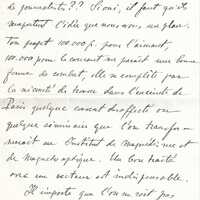 de journalistes ?? Si oui, il faut qu'ils
l'idée que nous avons un plan.
Ton projet 100.000 f. pour l'armement,
100.000 pour le courant me paraît une bonne
forme de combat, elle se complète par
la nécessité de trouver dans l'enceinte de
Paris quelque couvent désaffecté ou
quelque séminaire que l'on transfor-
merait en Institut de Magnétisme et
de magnéto optique. Un bon traité
avec un secteur est indispensable.
Il importe que l'on ne voit pas